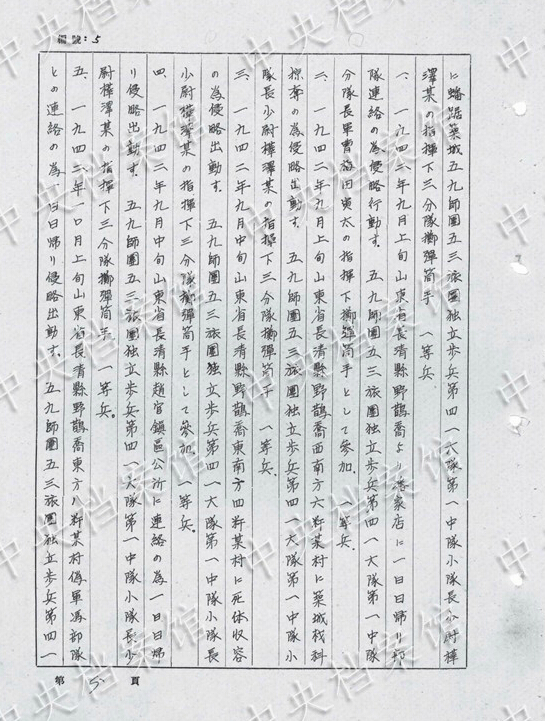 編號：5
に蟠踞築城五九師團五三旅團独立歩兵第四一大隊第一中隊小隊長少尉樺
澤某の指揮下三分隊擲彈筒手、一等兵
一、一九四二年九月上旬山東省長清縣野鵲喬より潘家店に一日日帰り部
隊連絡の為侵略行動す。五九師團五三旅團独立歩兵第四一大隊第一中隊
分隊長軍曹 田寅太の指揮下擲彈筒手として参加、一等兵。
二、一九四二年九月上旬山東省長清縣野鵲喬西南方六粁某村に築城材料
掠奪の為侵略出動す。五九師團五三旅團独立歩兵第四一大隊第一中隊小
隊長少尉樺澤某の指揮下三分隊擲彈筒手 一等兵。
三、一九四二年九月中旬山東省長清縣野鵲喬東南方四粁某村に死体收容
の為侵略出動す。五九師團五三旅團独立歩兵第四一大隊第一中隊小隊長
少尉樺澤某の指揮下三分隊擲彈筒手として参加、一等兵。
四、一九四二年九月中旬山東省長清縣趙官鎮區公所に連絡の為一日日帰
り侵略出動す。五九師團五三旅團独立歩兵第四一大隊第一中隊小隊長少
尉樺澤某の指揮下三分隊擲彈筒手、一等兵。
五、一九四二年一〇月上旬山東省長清縣野鵲喬東方八粁某村偽軍馮部隊
との連絡の為一日日帰り侵略出動す。五九師團五三旅團独立歩兵第四一
第 5 頁
中央档案馆